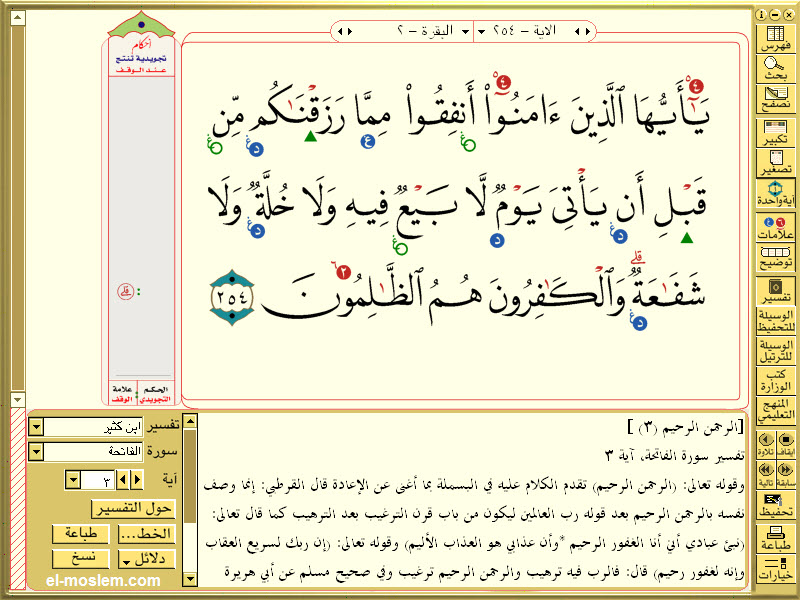 الآية - ٢٥٤
البقرة - ٢
يَـٰٓأَيُّهَا ٱلَّذِينَ ءَامَنُوٓا۟ أَنفِقُوا۟ مِمَّا رَزَقْنَـٰكُم مِّن
قَبْلِ أَن يَأْتِىَ يَوْمٌ لَّا بَيْعٌ فِيهِ وَلَا خُلَّةٌ وَلَا
شَفَـٰعَةٌ ۗ وَٱلْكَـٰفِرُونَ هُمُ ٱلظَّـٰلِمُونَ ٢٥٤
أحكام
تجويدية تنتج
عند الوقف
:
الحكم التجويدي
علامة الوقف
[الرحمن الرحيم (٣) ]
تفسير سورة الفاتحة، آية ٣
وقوله تعالى: (الرحمن الرحيم) تقدم الكلام عليه في البسملة بما أغنى عن الإعادة قال القرطبي: إنما وصف
نفسه بالرحمن الرحيم بعد قوله رب العالمين ليكون من باب قرن الترغيب بعد الترهيب كما قال تعالى:
(نبئ عبادي أني أنا الغفور الرحيم *وأن عذابي هو العذاب الأليم) وقوله تعالى: (إن ربك لسريع العقاب
وإنه لغفور رحيم) قال: فالرب فيه ترهيب والرحمن الرحيم ترغيب وفي صحيح مسلم عن أبي هريرة
تفسير ابن كثير
سورة الفاتحة
آية ٣
حول التفسير
الخط...
طباعة
دلائل
نسخ
el-moslem.com
فهرس
بحث
تصفح
تكبير
تصغير
آية واحدة
علامات
توضيح
تفسير
الوسيلة
للتحفيظ
الوسيلة
للترتيل
كتب
الوزارة
المنهج
التعليمي
ايقاف تلاوة
سابقة تالية
تحفيظ
طباعة
خيارات